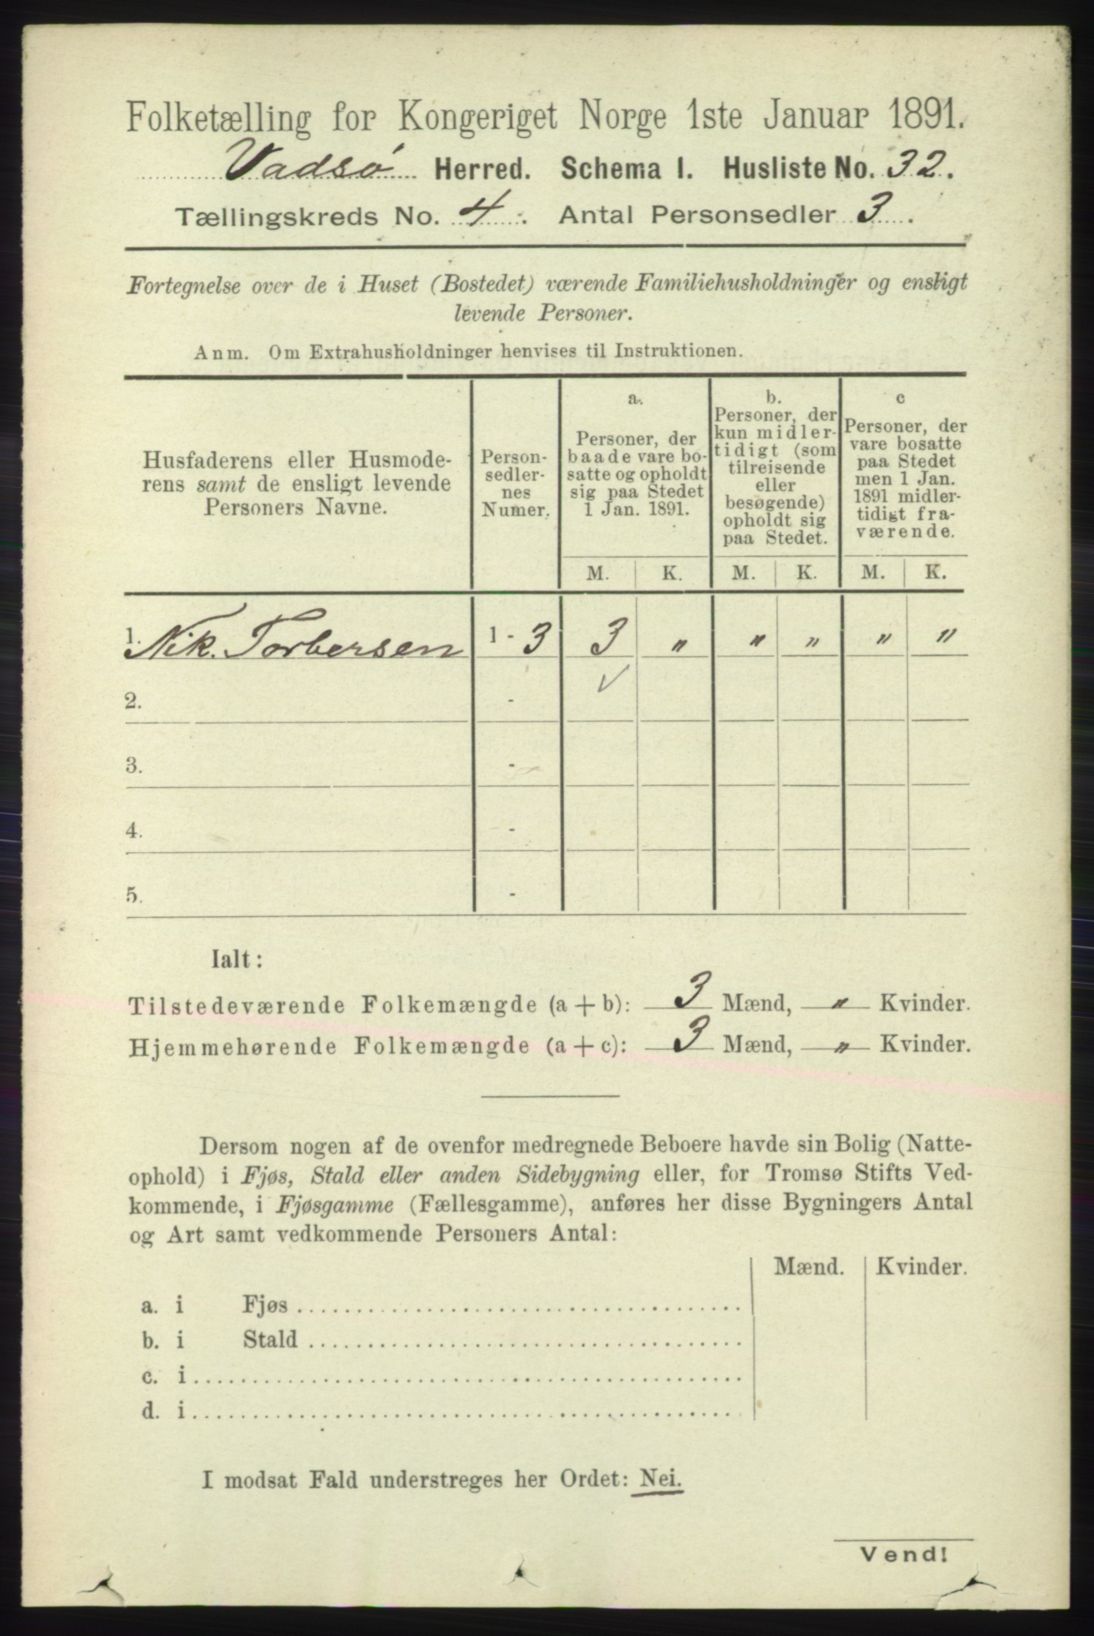 Folketælling for Kongeriget Norge 1ste Januar 1891.
Vadsø Herred. Schema I. Husliste No. 32.
Tællingskreds No. 4. Antal Personsedler 3.
Fortegnelse over de i Huset (Bostedet) værende Familiehusholdninger og ensligt
levende Personer.
Anm. Om Extrahusholdninger henvises til Instruktionen.
Husfaderens eller Husmode-
rens samt de ensligt levende
Personers Navne.
Person-
sedler-
nes
Numer.
a.
Personer, der
baade vare bo-
satte og opholdt
sig paa Stedet
1 Jan. 1891.
b.
Personer, der
kun midler-
tidigt (som
tilreisende
eller
besøgende)
opholdt sig
paa Stedet.
c
Personer, der
vare bosatte
paa Stedet
men 1 Jan.
1891 midler-
tidigt fra-
værende.
M. K. M. K. M. K.
1. Nik. Torbersen 1 - 3 3 „ „ „ „ „
2. - ✓
3. -
4. -
5. -
Ialt:
Tilstedeværende Folkemængde (a + b): 3 Mænd, „ Kvinder.
Hjemmehørende Folkemængde (a + c): 3 Mænd, „ Kvinder.
Dersom nogen af de ovenfor medregnede Beboere havde sin Bolig (Natte-
ophold) i Fjøs, Stald eller anden Sidebygning eller, for Tromsø Stifts Ved-
kommende, i Fjøsgamme (Fællesgamme), anføres her disse Bygningers Antal
og Art samt vedkommende Personers Antal:
Mænd. Kvinder.
a. i Fjøs
b. i Stald
c. i
d. i
I modsat Fald understreges her Ordet: Nei.
Vend!